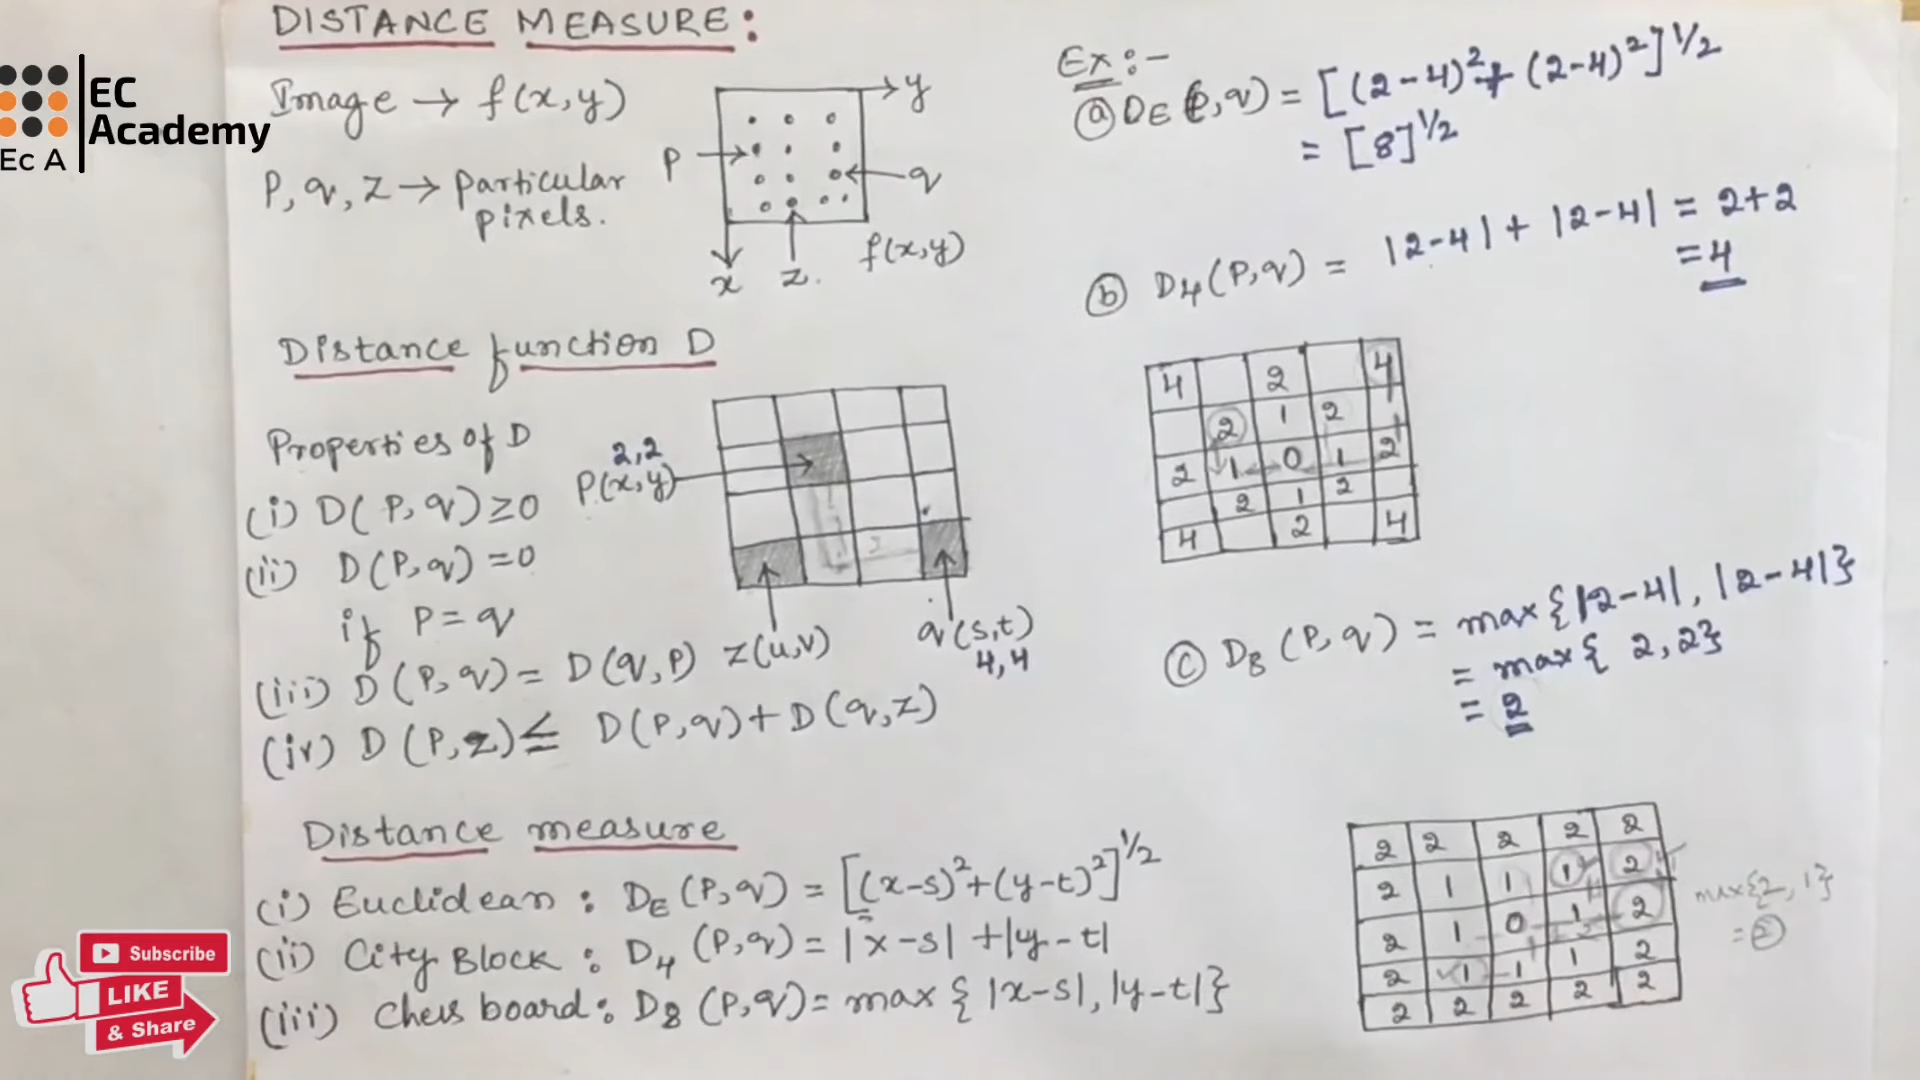 DISTANCE MEASURE:
EC
Academy
Ec A
Image → f(x,y)
P, q, z → particular
pixels.
y
P
q
x
z.
f(x,y)
Distance function D
Properties of D
(i) D(P,q)≥0
(ii) D(P,q)=0
if P=q
(iii) D(P,q)= D(q,P)
(iv) D(P,z)≤ D(P,q)+D(q,z)
2,2
P(x,y)
z(u,v)
q(s,t)
4,4
Distance measure
(i) Euclidean : DE(P,q) = [(x-s)²+(y-t)²]^1/2
(ii) City Block : D4 (P,q)=|x-s|+|y-t|
(iii) Chess board: D8 (P,q)= max{|x-s|,|y-t|}
Ex:-
ⓐ DE(P,q) = [(2-4)²+(2-4)²]^1/2
= [8]^1/2
ⓑ D4(P,q) = |2-4|+|2-4| = 2+2
=4
4 2 4
2 1 2
2 1 0 1 2
2 1 2
4 2 4
ⓒ D8(P,q) = max{|2-4|,|2-4|}
= max{2,2}
= 2
2 2 2 2 2
2 1 1 1 2
2 1 0 1 2
2 1 1 1 2
2 2 2 2 2
max{2,1}
=2
Subscribe
LIKE
& Share